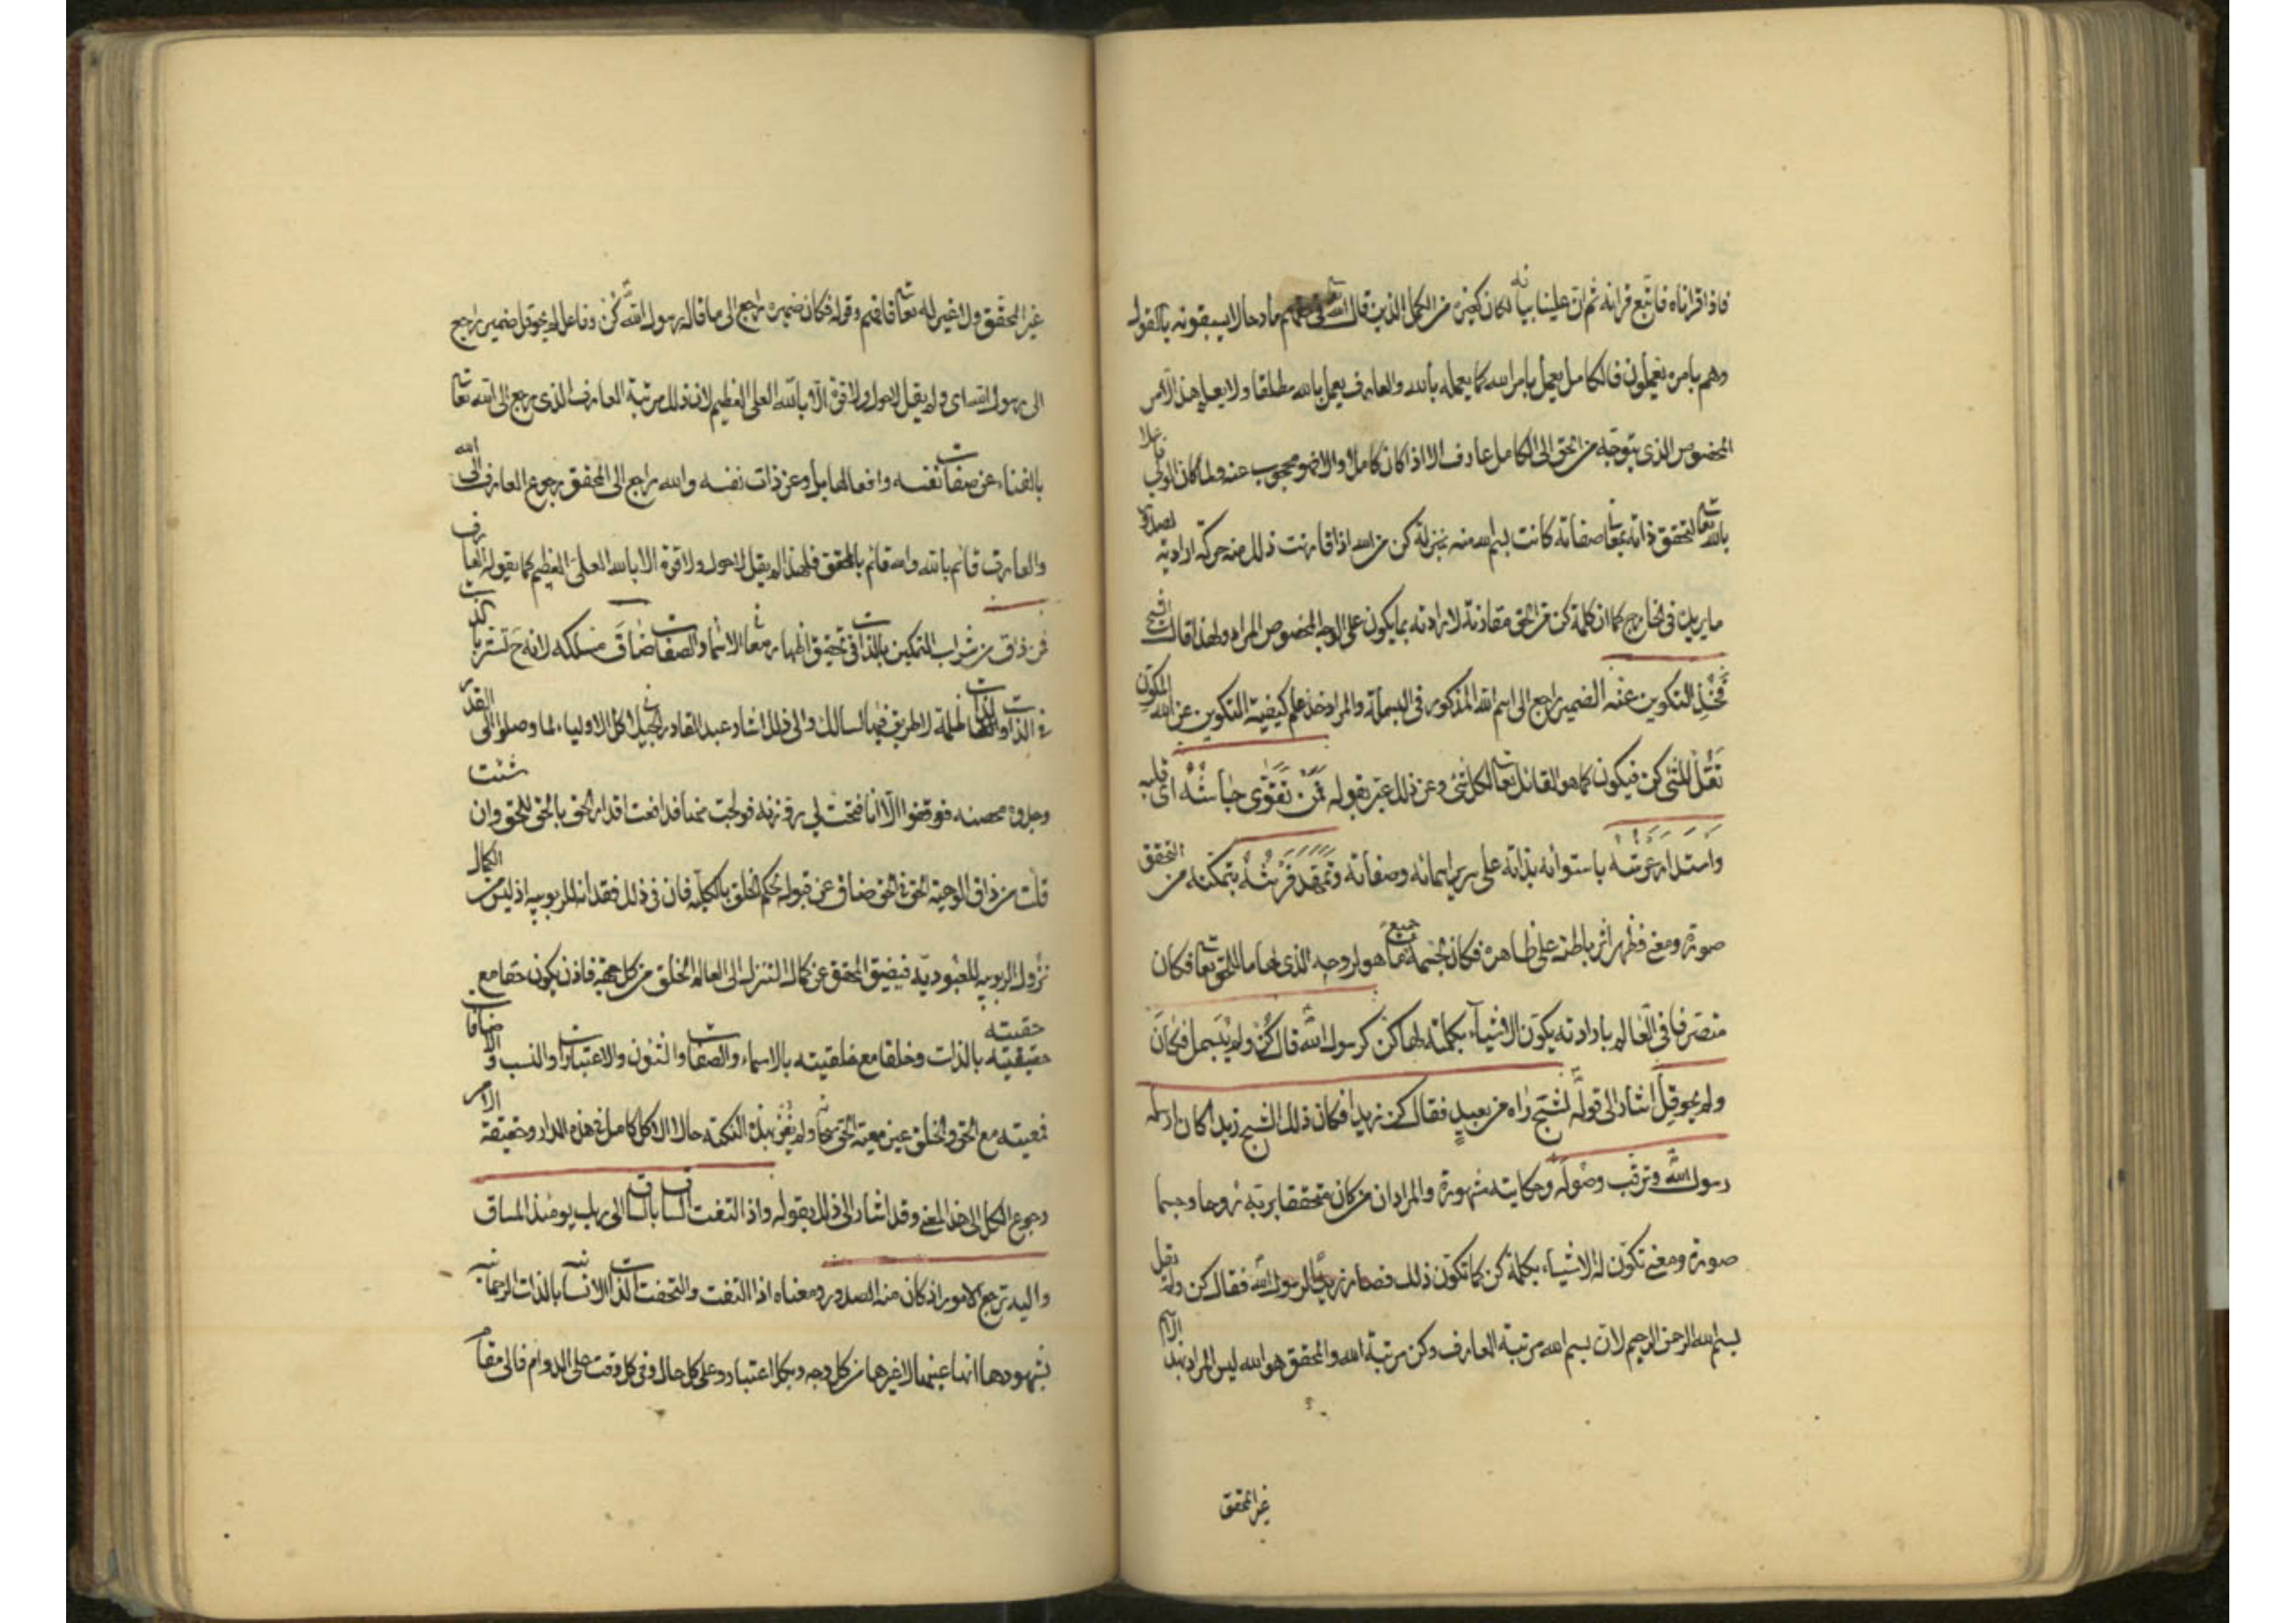 فاذا قراناه فاتبع قرانه ثم ان علينا بيانه لكان كغيره من الكمل الذين قال الله تع في حقهم مادحا لا يسبقونه بالقول
وهم بامره يعملون فالكامل يعمل بامر الله كما يعمله بالله والعارف يعمل بالله مطلقا ولا يعلم هذا الامر
المخصوص الذي يتوجه من الحق الى الكامل عارف الا اذا كان كاملا والا فهو محجوب عنه ولما كان الولي
بالله تعا لتحقق ذاته بمعا صفاته كانت بسم الله منه بمنزلة كن من الله اذا قارنت ذلك منه حركة ارادته
ما يريد في الخارج كما ان كلمة كن من الحق مقارنة لارادته بما يكون على الوجه المخصوص المراد ولهذا قال الشيخ
فخذ التكوين عنه الضمير راجع الى اسم الله المذكور في البسملة والمراد خذ علم كيفية التكوين عن الله المكون
تقل للشئ كن فيكون كما هو القائل تعا لكل شئ وعن ذلك عبر بقوله فمن تقوى جاشه اي قلبه
واستدار عرشه باستوائه بذاته على سرير اسمائه وصفاته وتمهد فرشه بتمكنه من التحقق
صورة ومعنى فظهر اثر باطنه على ظاهره فكان لجسمه جميع ما هو لروحه الذى لها ما للحق تعا فكان
متصرفا في العالم بارادته يكون الاشياء بكلمته لها كن كرسول الله قال كن ولم يبسمل فكان
ولم يحوقل اشار الى قوله لشبح راه من بعيد فقال كن زيدا فكان ذلك الشبح زيدا كان ارسله
رسول الله وترقب وصوله وحكايته مشهورة والمراد ان من كان متحققا بربه روحا وجسما
صورة ومعنى تكون له الاشياء بكلمة كن كما تكون ذلك فصار زيدا لرسول الله فقال كن ولم يقل
بسم الله الرحمن الرحيم لان بسم الله مرتبة العارف وكن مرتبة الله والمحقق هو الله ليس المراد بهذا الاسم
غير المحقق
غير المحقق ولا غير له تعا فافهم وقوله فكان ضميره راجع الى ما قال له رسول الله كن وفاعل لم يحوقل ضمير راجع
الى رسول الله اى ولم يقل لا حول ولا قوة الا بالله العلى العظيم لان ذلك مرتبة العارف الذى يرجع الى الله تعا
بالفناء عن صفات نفسه وافعالها بل وعن ذات نفسه والله راجع الى المحقق رجوع العارف الى الله
والعارف قائم بالله والله قائم بالمحقق فلهذا لم يقل لا حول ولا قوة الا بالله العلى العظيم كما يقوله العارف
فمن ذاق من شراب التمكين بالذات في تحقيق اظهار معانى الاسما والصفات ضاق مسلكه لانه ح تستر بالذات
في الذات والذات ظلمة لا طريق فيها لسالك والى ذلك اشار عبد القادر الجيلى كل الاولياء لما وصلوا الى القدر
وجدوه فوقفوا الا انا فتحت لي روزنه فولجت منها فدافعت اقدار الحق بالحق للحق وان شئت
قلت من ذاق الوحية الحق في الحق ضاق عن قبوله حكم الخلق بالكلية فان في ذلك فقدانه للربوبيه اذ ليس من الكمال
نزول الربوبيه للعبوديه فيضيق المحقق عن كمال التنزل الى العالم الخلق من كل جهة فاذن يكون حقا مع
حقيقته بالذات وخلقا مع خلقيته بالاسماء والصفات والشئون والاعتبارات والنسب والاضافات
فمعيته مع الحق والخلق عين معية الحق معها ولم يفز بهذه النكتة حالا الا كل كامل في هذه الدار وحقيقة الامر
رجوع الكل الى هذا المعنى وقد اشار الى ذلك بقوله واذا التفت الساق بالساق الى ربك يومئذ المساق
واليه ترجع الامور اذ كان منه الصدور ومعناه اذا التفت والتحفت الذات الانسانيه بالذات الرحمانيه
بشهودها انها عينها لا غيرها من كل وجه وبكل اعتبار وعلى كل حال وفي كل وقت على الدوام فالى مقام